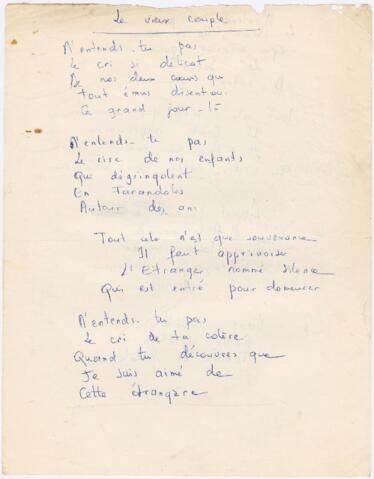 Le vieux couple
N'entends-tu pas
Le cri si délicat
De nos deux cœurs qui
Tout émus disent oui
Ce grand jour-là
N'entends-tu pas
Le rire de nos enfants
Qui dégringolent
En Farandoles
Autour des ans
Tout cela n'est que souvenance
Il faut apprivoiser
L'Etranger nommé silence
Qui est entré pour demeurer
N'entends-tu pas
Le cri de ta colère
Quand tu découvres que
Je suis aimé de
Cette étrangère